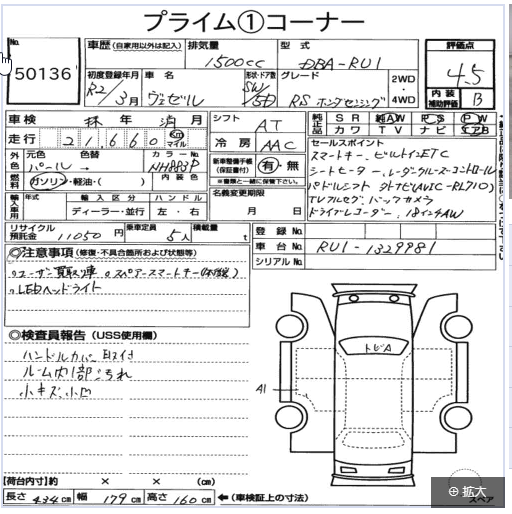 プライム①コーナー
No. 50136
車歴 (自家用以外は記入) 排気量 1500cc 型式 DBA-RU1
評価点 4.5
初度登録年月 R2/3月 車名 ヴェゼル 形状・ドア数 SW/5D グレード RS ホンダセンシング 2WD・4WD
内装補助評価 B
車検 抹年消月 シフト AT 純正 SR 純AW PS PW
カワ TV ナビ エアB
走行 21,660 Km マイル 冷房 AAC
外色 元色 パール → 色替 NH883P
燃料 ガソリン・軽油・( ) 内装色
新車整備手帳(保証書付) 有・無
※書類と一緒に保管下さい。
セールスポイント
スマートキー、ビルトインETC
シートヒーター、レーダークルーズコントロール
パドルシフト 外ナビ(AVIC-RL710)
TVフルセグ バックカメラ
ドライブレコーダー、18インチAW
輸入車用 年式 輸入区分 ハンドル
ディーラー・並行 左・右
名義変更期限 月 日
リサイクル預託金 11050円 乗車定員 5人 積載量 t
登録No.
車台No. RU1-1329981
シリアルNo.
◎注意事項 (修復・不具合箇所および状態等)
○ユーザー買取り車 ○スペアースマートキー
○LEDヘッドライト
◎検査員報告 (USS使用欄)
ハンドルカバー取付
ルーム内1部汚れ
小キズ、小凹
トビA
A1
【荷台内寸】約 × × (cm)
長さ 434cm 幅 179cm 高さ 160cm ←(車検証上の寸法)
スペア
拡大